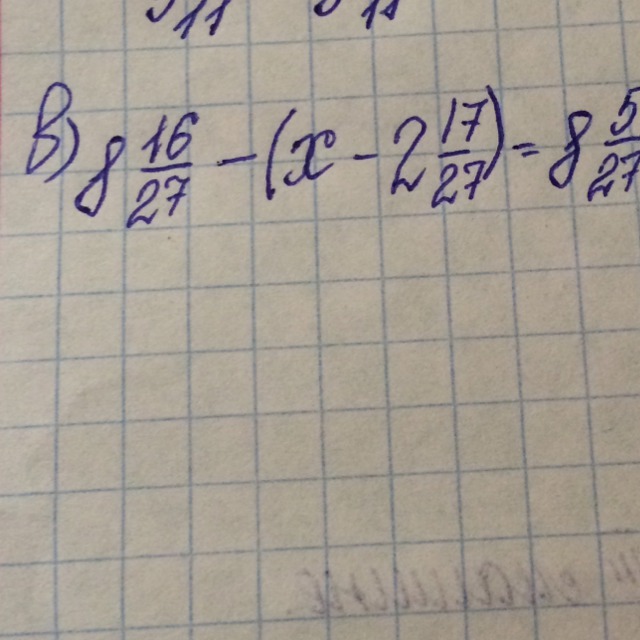 в) 8 16/27 - (x - 2 17/27) = 8 5/27